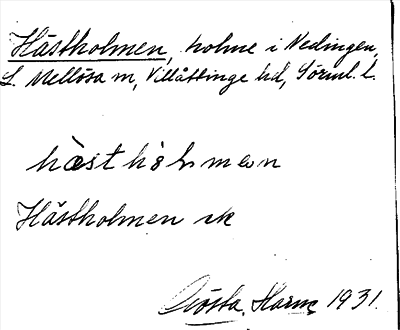 Hästholmen, holme i Nedingen,
L. Mellösa sn, Villåttinge hd, Sörml. l.
hæsthòlmen
Hästholmen sk
Gösta Harms 1931.